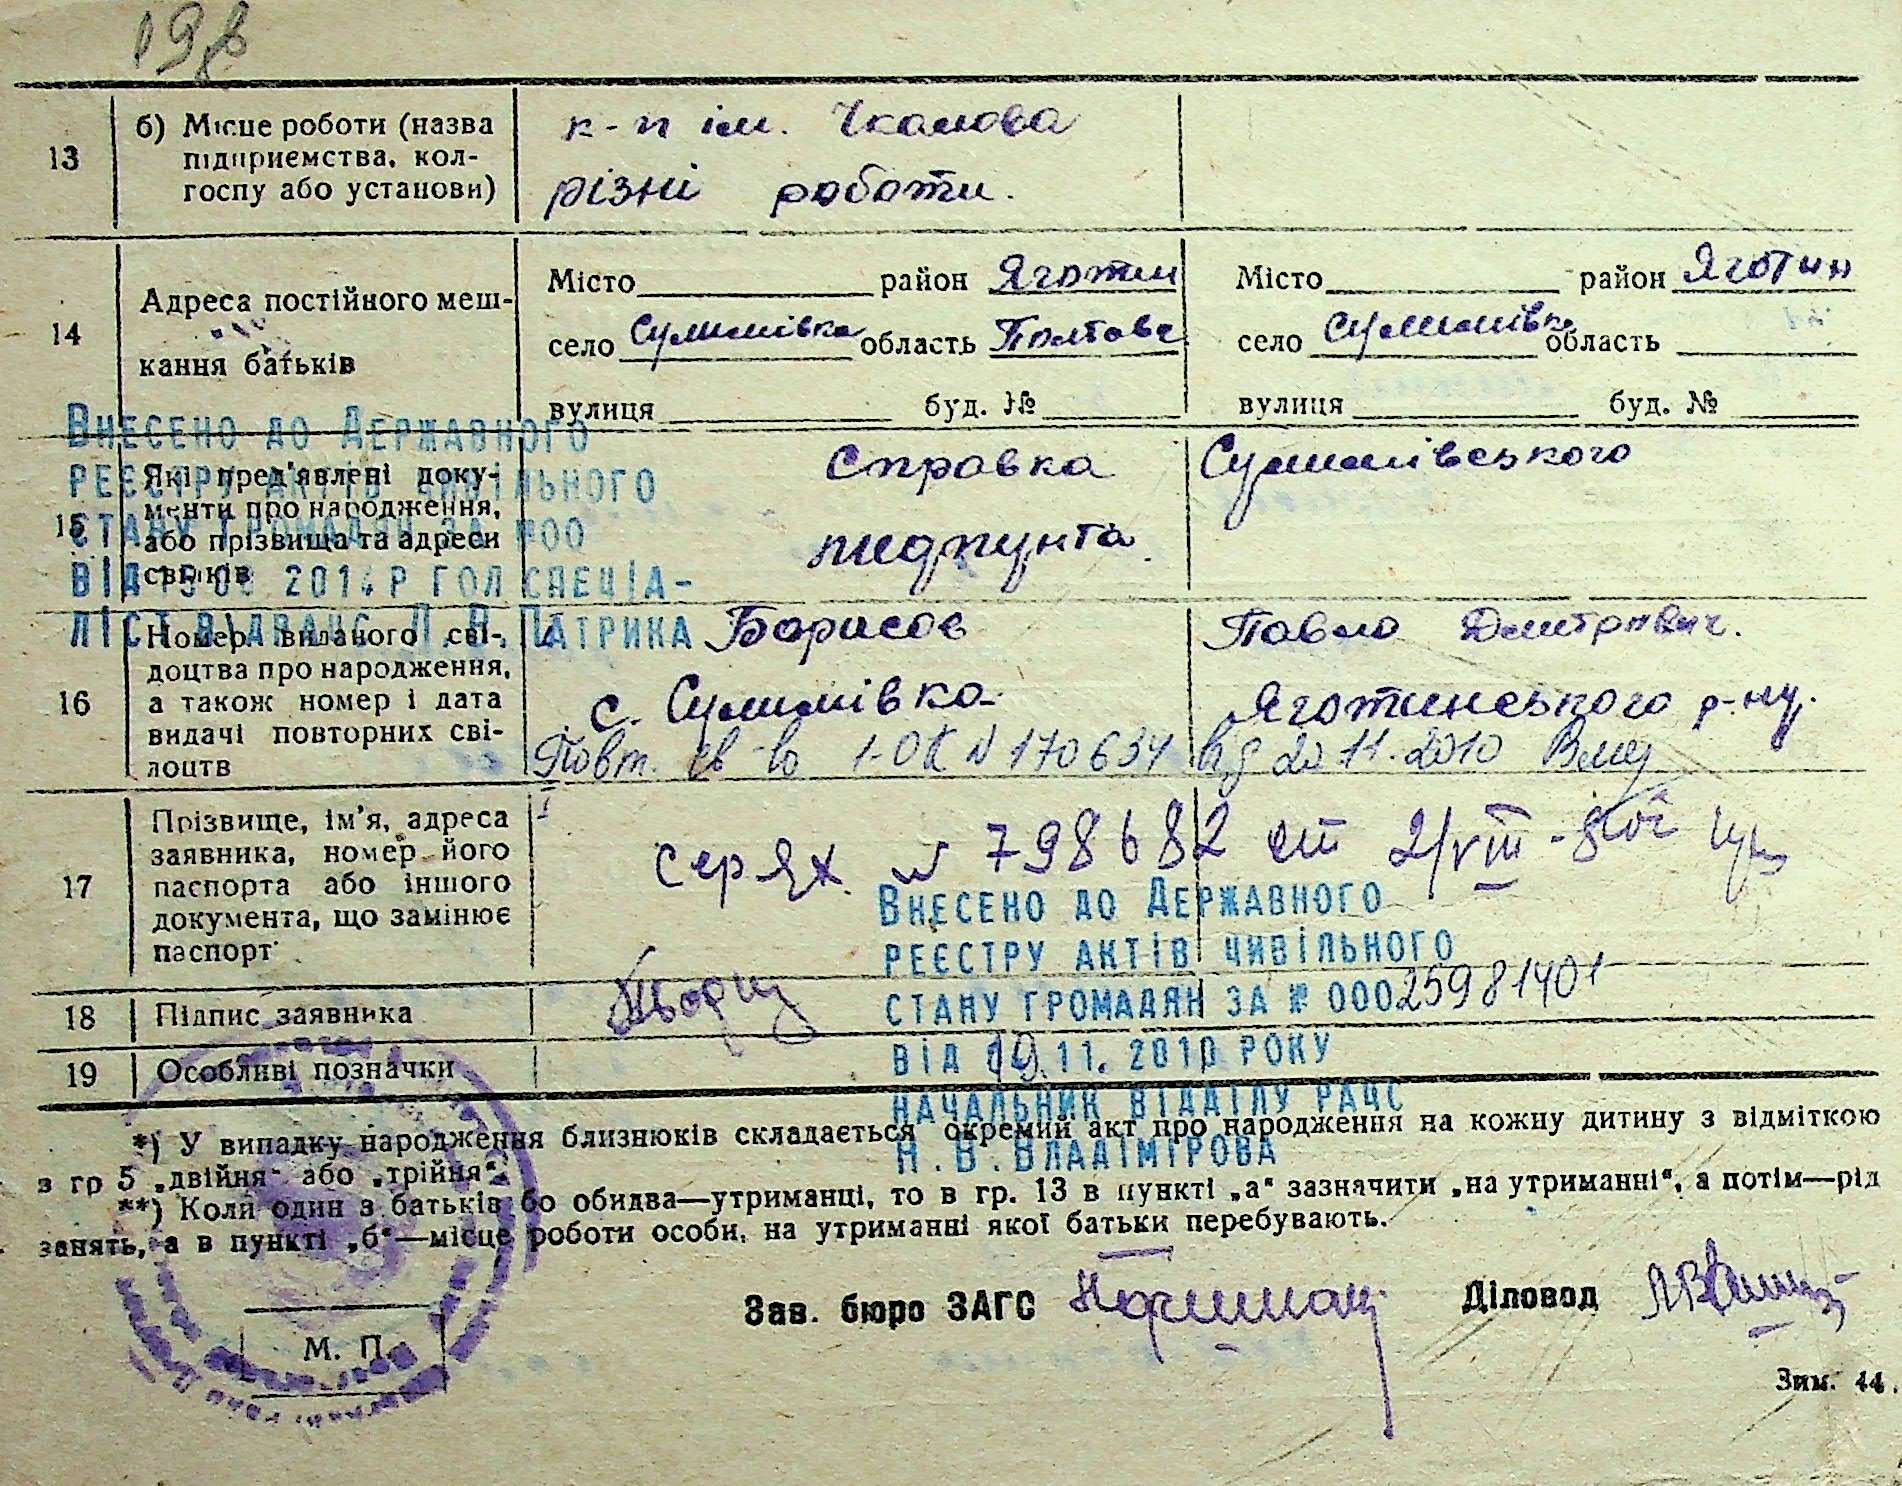 198
13
б) Місце роботи (назва
підприємства, кол-
госпу або установи)
к-п ім. Чкалова
різні роботи.
14
Адреса постійного меш-
кання батьків
Місто район Яготин
село Сулимівка область Полтавс
вулиця буд. №
Місто район Яготин
село Сулимівка область
вулиця буд. №
Внесено до Державного
реєстру актів цивільного
стану громадян за №00
від 2014р гол спеціа-
ліст відрацс Л.В.Патрика
15
Які пред'явлені доку-
менти про народження,
або прізвища та адреси
свідків
Справка Сулимівського
медпунта.
16
Номер виданого сві-
доцтва про народження,
а також номер і дата
видачі повторних сві-
доцтв
Борисов Павло Дмитрович.
с. Сулимівка Яготинського р-ну.
Повт. св-во 1-ОК N 170634 від 20 11.2010
17
Прізвище, ім'я, адреса
заявника, номер його
паспорта або іншого
документа, що замінює
паспорт
сер ЯХ. N 798682 от 2/VIII
Внесено до Державного
реєстру актів цивільного
стану громадян за № 00025981401
від 19.11.2010 року
начальник відділу рацс
Н.В.Владімірова
18
Підпис заявника
19
Особливі позначки
*) У випадку народження близнюків складається окремий акт про народження на кожну дитину з відміткою
в гр 5 „двійня“ або „трійня“.
**) Коли один з батьків бо обидва—утриманці, то в гр. 13 в пункті „а“ зазначити „на утриманні“, а потім—рід
занять, а в пункті „б“—місце роботи особи, на утриманні якої батьки перебувають.
Зав. бюро ЗАГС
Діловод
М. П.
Зим. 44.